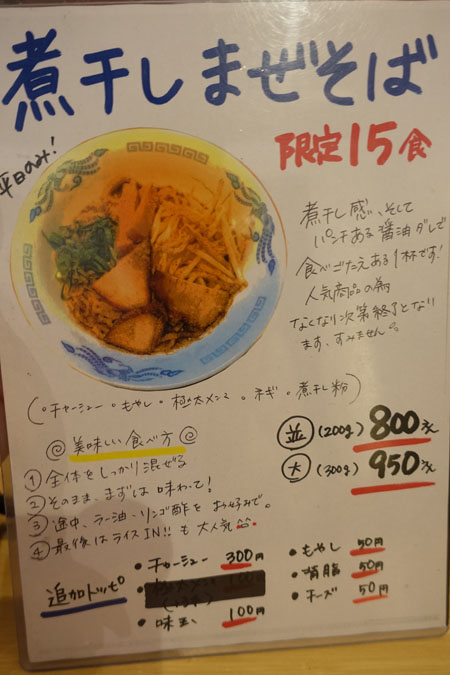 煮干しまぜそば
平日のみ!
限定15食
煮干し感、そして
パンチある醤油ダレで
食べごたえある1杯です!
人気商品の為
なくなり次第終了となり
ます、すみません。
(・チャーシュー・もやし・極太メンマ・ネギ・煮干し粉)
並 (200g) 800元
大 (300g) 950元
◎美味しい食べ方◎
① 全体をしっかり混ぜる
② そのまま、まずは味わって!
③ 途中、ラー油・リンゴ酢をお好みで。
④ 最後はライスIN!!も大人気
追加トッピ
・チャーシュー 300円
・味玉 100円
・もやし 50円
・背脂 50円
・チーズ 50円